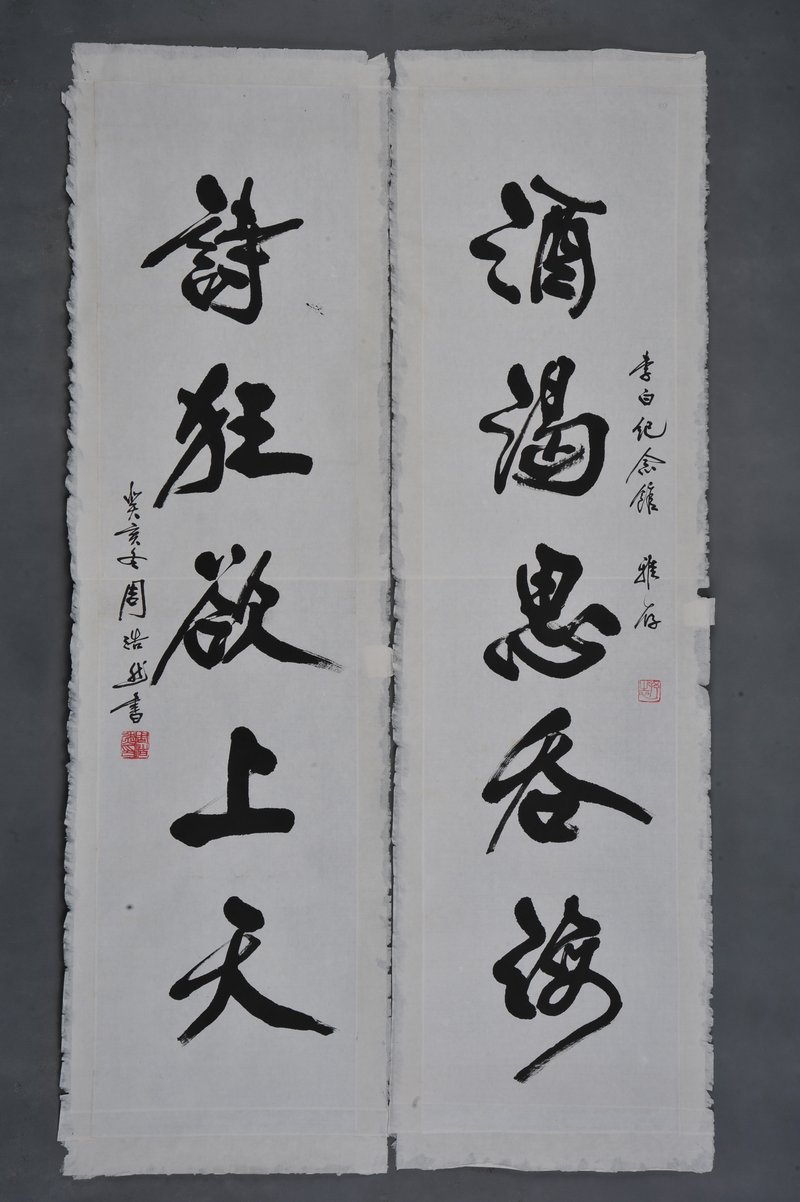 李白纪念馆 雅存
酒渴思吞海
詩狂欲上天
癸亥冬周浩然書